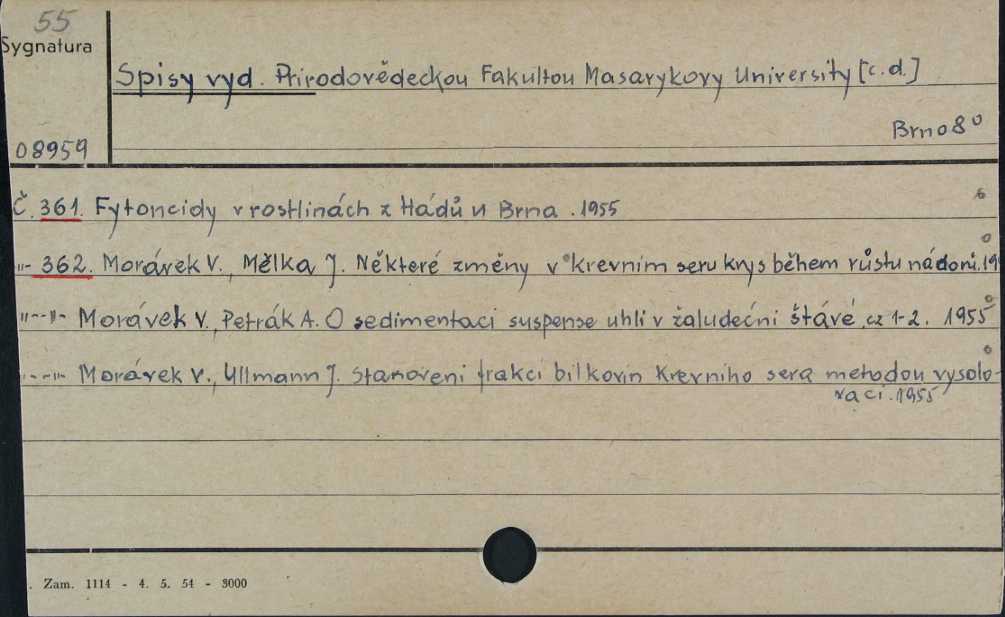 55
Sygnatura
Spisy vyd. Prirodovědeckou Fakultou Masarykovy University [c.d.]
Brno 8°
08959
Č. 361. Fytoncidy v rostlinách z Hádů u Brna. 1955
-"- 362. Morávek V., Mělka J. Některé změny v krevnim seru krys během růstu nádorů. 19
-"--"- Morávek V., Petrák A. O sedimentaci suspense uhli v žaludećni štávé, cz 1-2. 1955
-"--"- Morávek V., Ullmann J. Stanoveni frakci bilkovin Krevniho sera metodou vysolo-
vaci. 1955
. Zam. 1114 - 4. 5. 54 - 3000